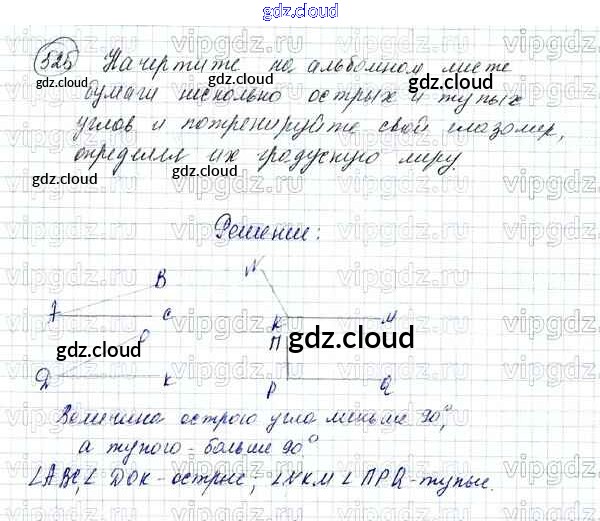 gdz.cloud
525 Начертите на альбомном листе
бумаги несколько острых и тупых
углов и потренируйте свой глазомер,
определяя их градусную меру.
gdz.cloud
gdz.cloud
gdz.cloud
gdz.cloud
gdz.cloud
Решение:
B
N
A
C
K
M
П
gdz.cloud
gdz.cloud
Д
K
P
Q
Величина острого угла меньше 90°,
а тупого - больше 90°
∠ABC, ∠ДОК - острые; ∠NKM ∠ПРQ - тупые.
vipgdz.ru